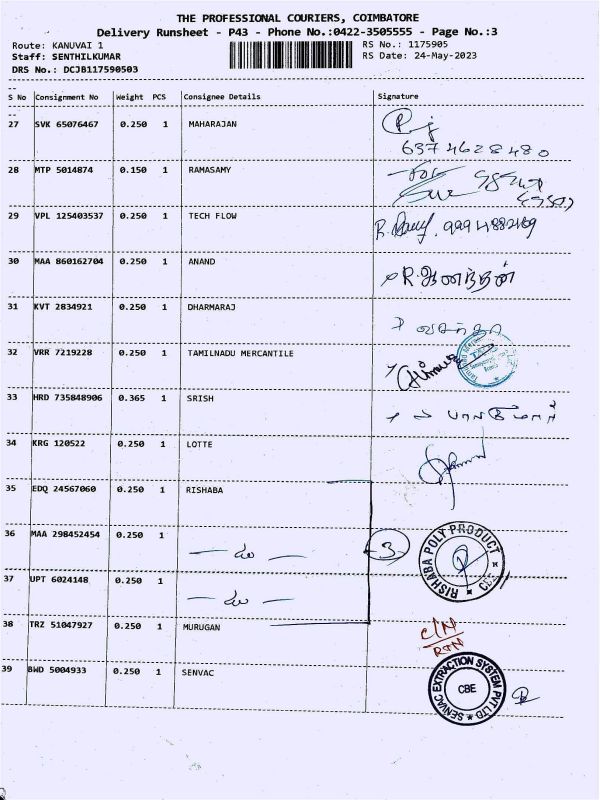 THE PROFESSIONAL COURIERS, COIMBATORE
Delivery Runsheet - P43 - Phone No.:0422-3505555 - Page No.:3
Route: KANUVAI 1 RS No.: 1175905
Staff: SENTHILKUMAR RS Date: 24-May-2023
DRS No.: DCJB117590503
S No Consignment No Weight PCS Consignee Details Signature
27 SVK 65076467 0.250 1 MAHARAJAN
6374628480
28 MTP 5014874 0.150 1 RAMASAMY
29 VPL 125403537 0.250 1 TECH FLOW
30 MAA 860162704 0.250 1 ANAND R.ஆனந்தன்
31 KVT 2834921 0.250 1 DHARMARAJ
வசந்தா
32 VRR 7219228 0.250 1 TAMILNADU MERCANTILE
33 HRD 735848906 0.365 1 SRISH
34 KRG 120522 0.250 1 LOTTE
35 EDQ 24567060 0.250 1 RISHABA
36 MAA 298452454 0.250 1
3
RISHABA POLY PRODUCT CBE
37 UPT 6024148 0.250 1
38 TRZ 51047927 0.250 1 MURUGAN
C/N
RTN
39 BWD 5004933 0.250 1 SENVAC
SENVAC EXTRACTION SYSTEM PVT LTD
CBE